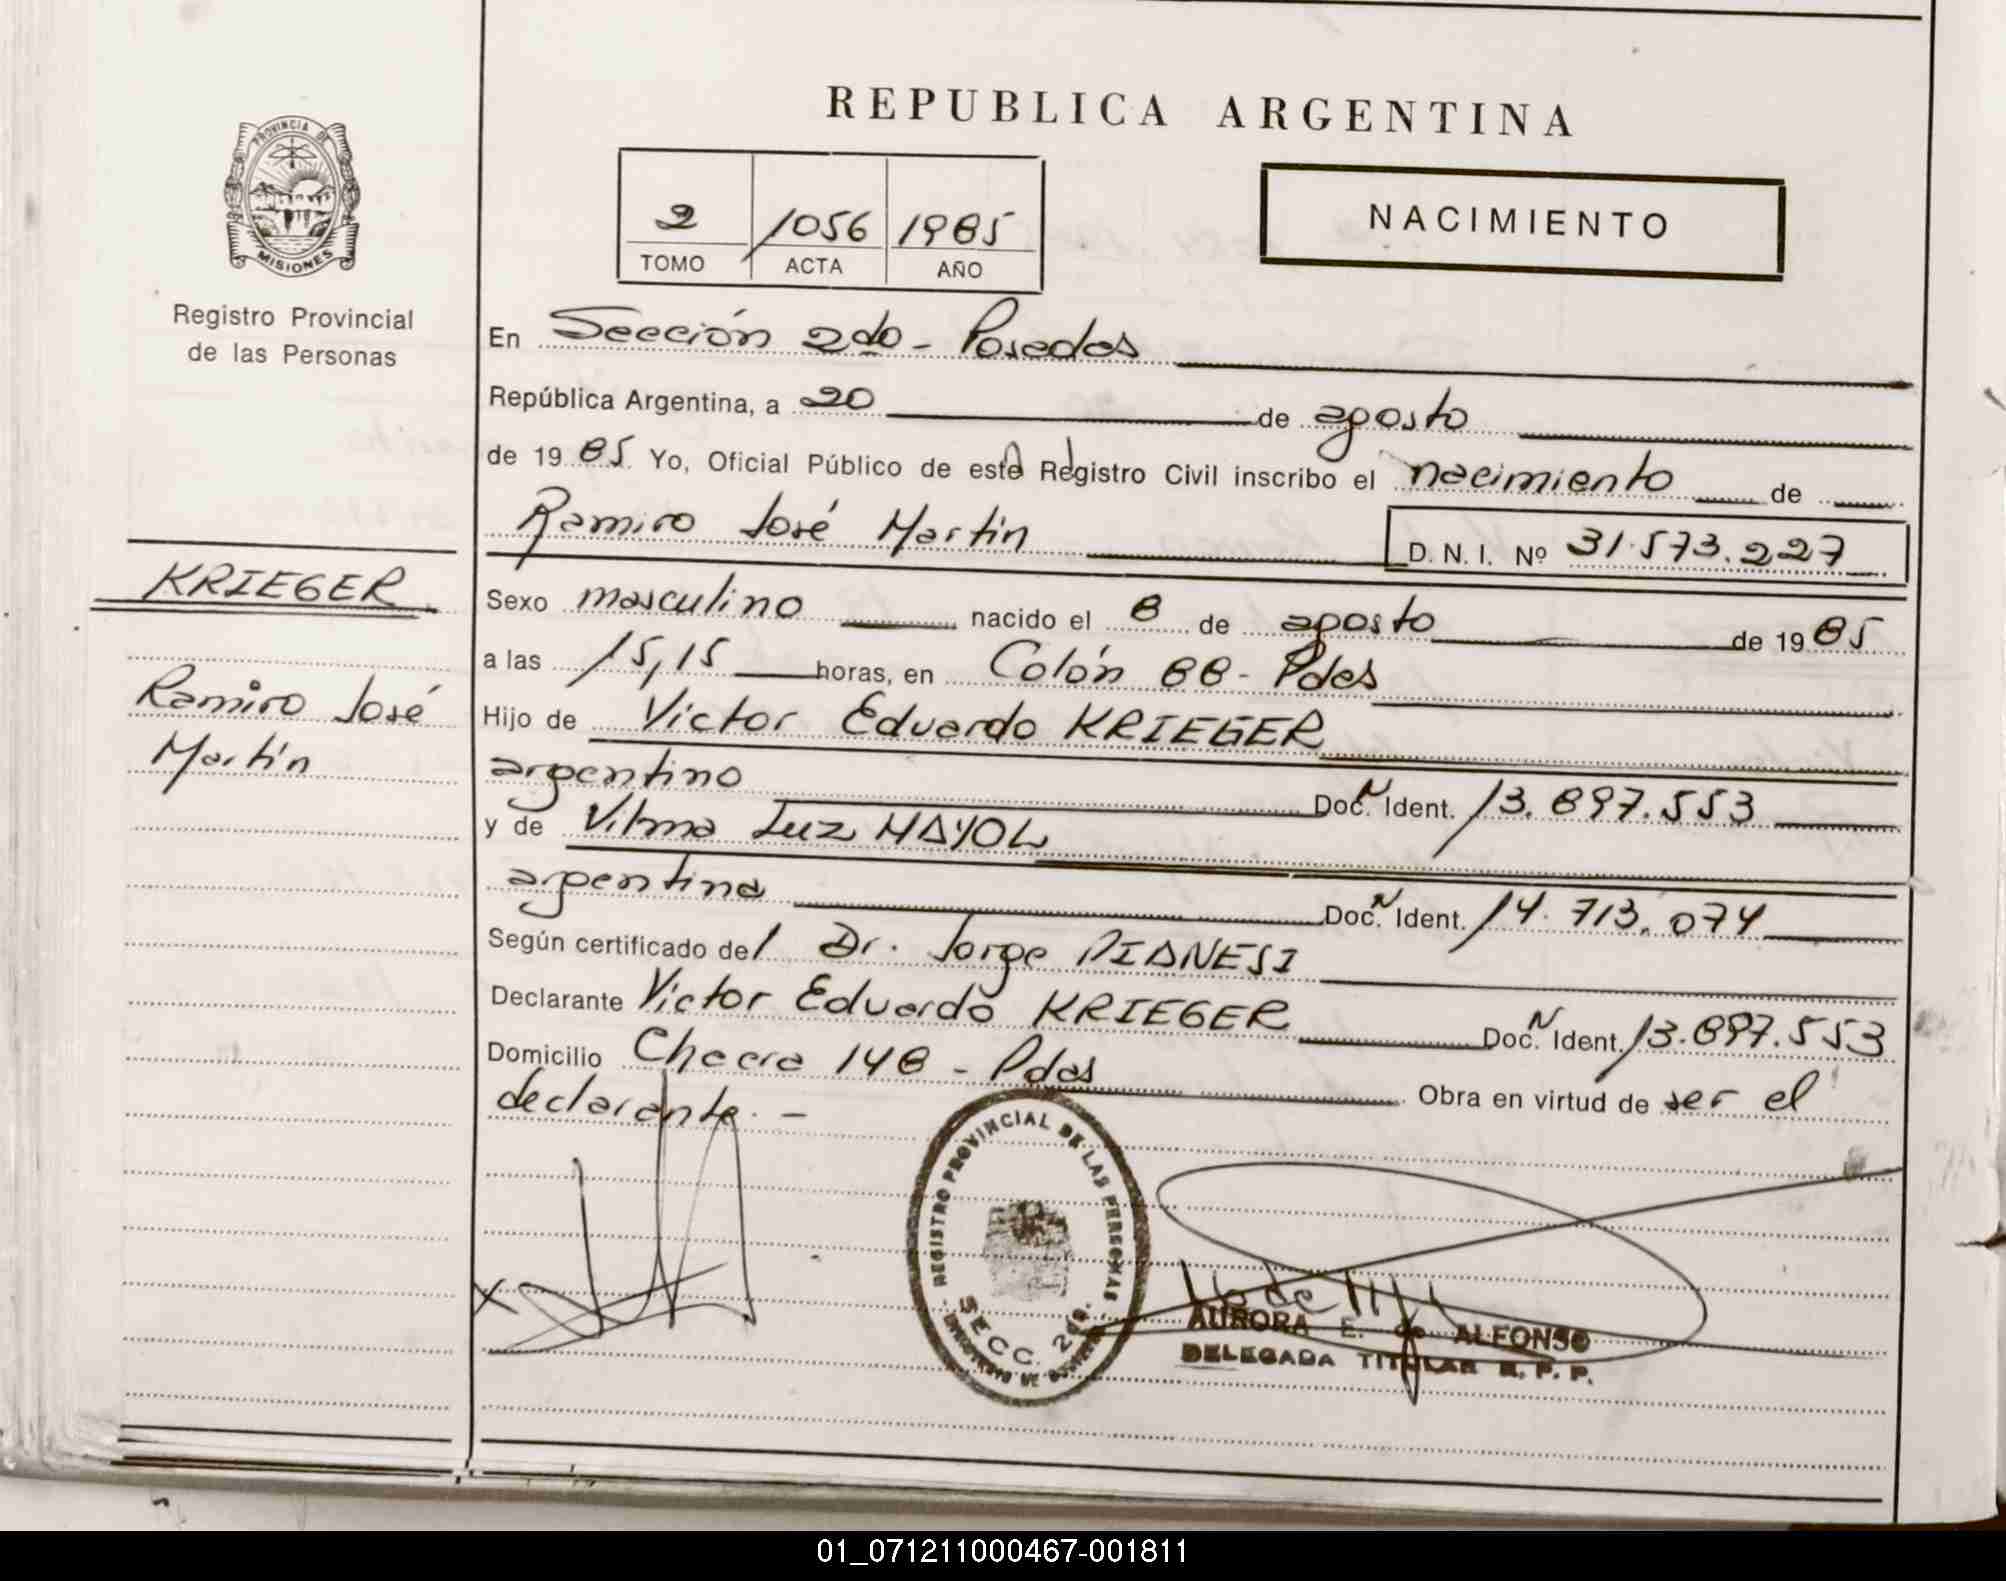 PROVINCIA DE
MISIONES
Registro Provincial
de las Personas
KRIEGER
Ramiro José
Martín
REPUBLICA ARGENTINA
2 1056 1985
TOMO ACTA AÑO
NACIMIENTO
En Sección 2do - Posadas
República Argentina, a 20 de agosto
de 1985 Yo, Oficial Público de este Registro Civil inscribo el nacimiento de
Ramiro José Martín D. N. I. Nº 31.573.227
Sexo masculino nacido el 8 de agosto de 1985
a las 15,15 horas, en Colón 88 - Pdas
Hijo de Victor Eduardo KRIEGER
argentino Doc. N Ident. 13.897.553
y de Vilma Luz MAYOL
argentina Doc. N Ident. 14.713.074
Según certificado del Dr. Jorge PIANESI
Declarante Victor Eduardo KRIEGER Doc. N Ident. 13.897.553
Domicilio Chacra 148 - Pdas Obra en virtud de ser el
declarante. -
REGISTRO PROVINCIAL DE LAS PERSONAS
SECC. 2
AURORA E. de ALFONSO
DELEGADA TITULAR R. P. P.
01_071211000467-001811